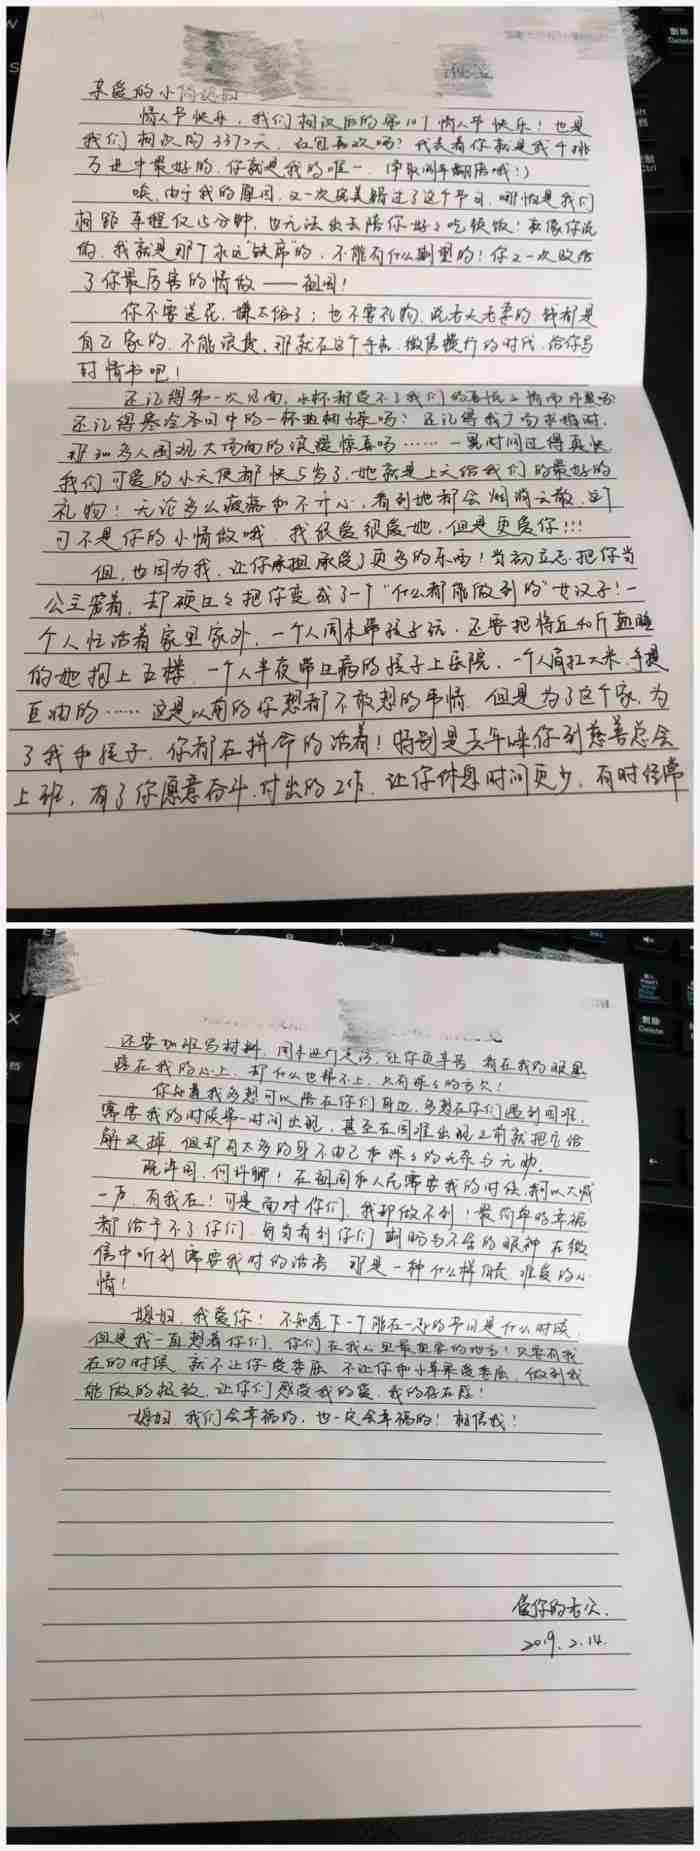 亲爱的小
情人节快乐，我们相识后的第10个情人节快乐！也是
我们相识的3372天，红包喜欢吗？代表着你就是我千挑
万选中最好的，你就是我的唯一。（争取明年翻倍哦！）
唉，由于我的原因，又一次完美错过了这个节日，哪怕是我们
相距车程仅15分钟，也无法出去陪你好好吃顿饭！就像你说
的，我就是那个永远"缺席"的，不能有什么期望的！你又一次败给
了你最厉害的情敌——祖国！
你不要送花，嫌太俗了；也不要礼物，说香火香柔的 钱都是
自己家的，不能浪费，那就在这个手机、微信横行的时代，给你写
封情书吧！
还记得第一次见面，水杯都 不了我们的
还记得寒冷冬日中的一杯热 吗？还记得我广场求婚时，
那 多人围观大场面的浪漫惊喜吗……一晃时间过得真快
我们可爱的小天使都快5岁了，她就是上天给我们的最好的
礼物！无论多么疲惫和不开心，看到她都会烟消云散，这个
可不是你的小情敌哦，我很爱很爱她，但是更爱你!!!
但，也因为我，让你承担承受了更多的东西！当初立志把你当
公主宠着，却硬生生把你变成了一个"什么都能做到的"女汉子！一
个人忙活着家里家外，一个人周末带孩子玩，还要把将近40斤熟睡
的她抱上五楼，一个人半夜带生病的孩子上医院，一个人肩扛大米、手提
豆油的……这是以前的你想都不敢想的事情，但是为了这个家，为
了我和孩子，你都在拼命的活着！特别是去年 你到慈善总会
上班，有了你愿意奋斗、付出的工作，让你休息时间更少，有时经常
还要加班写材料，周末进行走访，让你更辛苦，看在我的眼里
疼在我的心上，却什么也帮不上，只有深深的亏欠！
你知道我多想可以陪在你们身边，多想在你们遇到困难，
需要我的时候第一时间出现，甚至在困难出现之前就把它给
解决掉，但却有太多的身不由己和深深的无奈与无助。
既许国，何许卿！在祖国和人民需要我的时候，我可以大喊
一声，有我在！可是面对你们，我却做不到！最简单的幸福
都给予不了你们，每当看到你们期盼与不舍的眼神，在微
信中听到需要我时的话语，那是一种什么样 难受的心
情！
媳妇，我爱你！不知道下一个能在一起的节日是什么时候，
但是我一直想着你们，你们在我心里最重要的地方！只要有我
在的时候，就不让你受委屈，不让你和小苹果受委屈，做到我
能做的极致，让你们感受我的爱，我的存在感！
媳妇，我们会幸福的，也一定会幸福的！相信我！
爱你的老公
2019.2.14.
删除
Delete
Ctrl
删除
Delete